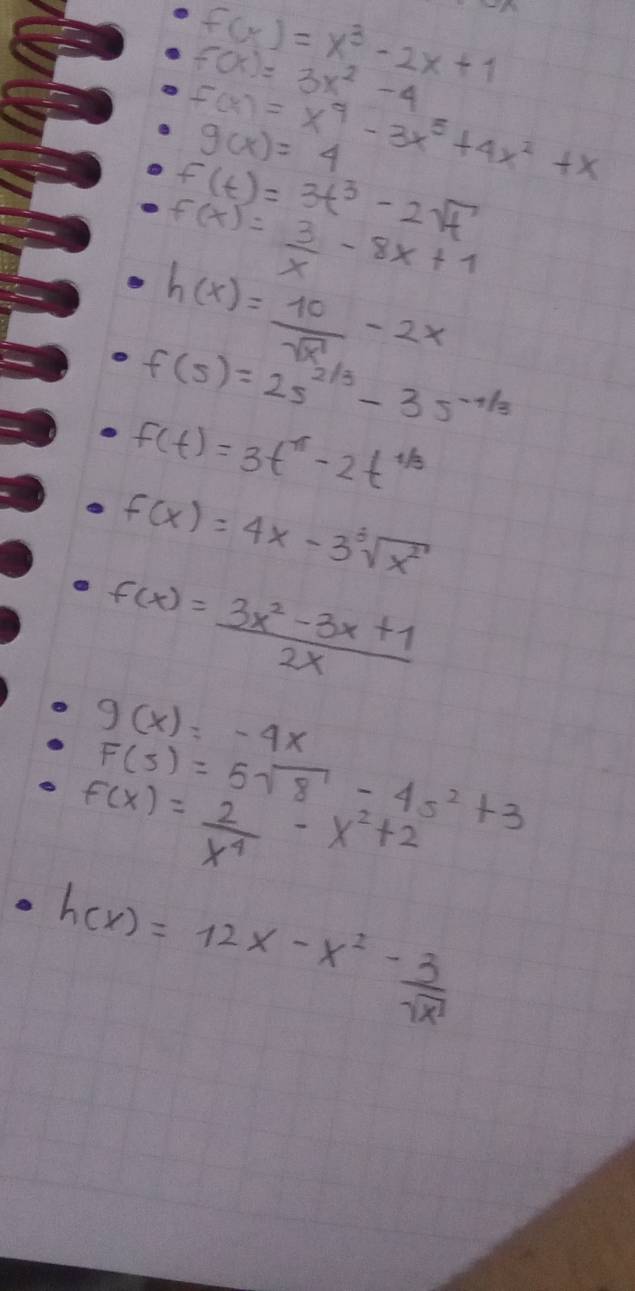 • f(x) = x³ - 2x + 1
• f(x) = 3x² - 4
• f(x) = x⁴ - 3x⁵ + 4x² + x
• g(x) = 4
• f(t) = 3t³ - 2√t
• f(x) = 3/x - 8x + 1
• h(x) = 10/√x - 2x
• f(s) = 2s^2/3 - 3s^-1/3
• f(t) = 3t^π - 2t^1/3
• f(x) = 4x - 3⁵√x²
• f(x) = (3x² - 3x + 1)/2x
• g(x) = -4x
• F(s) = 5√8 - 4s² + 3
• f(x) = 2/x⁴ - x² + 2
• h(x) = 12x - x² - 3/√x